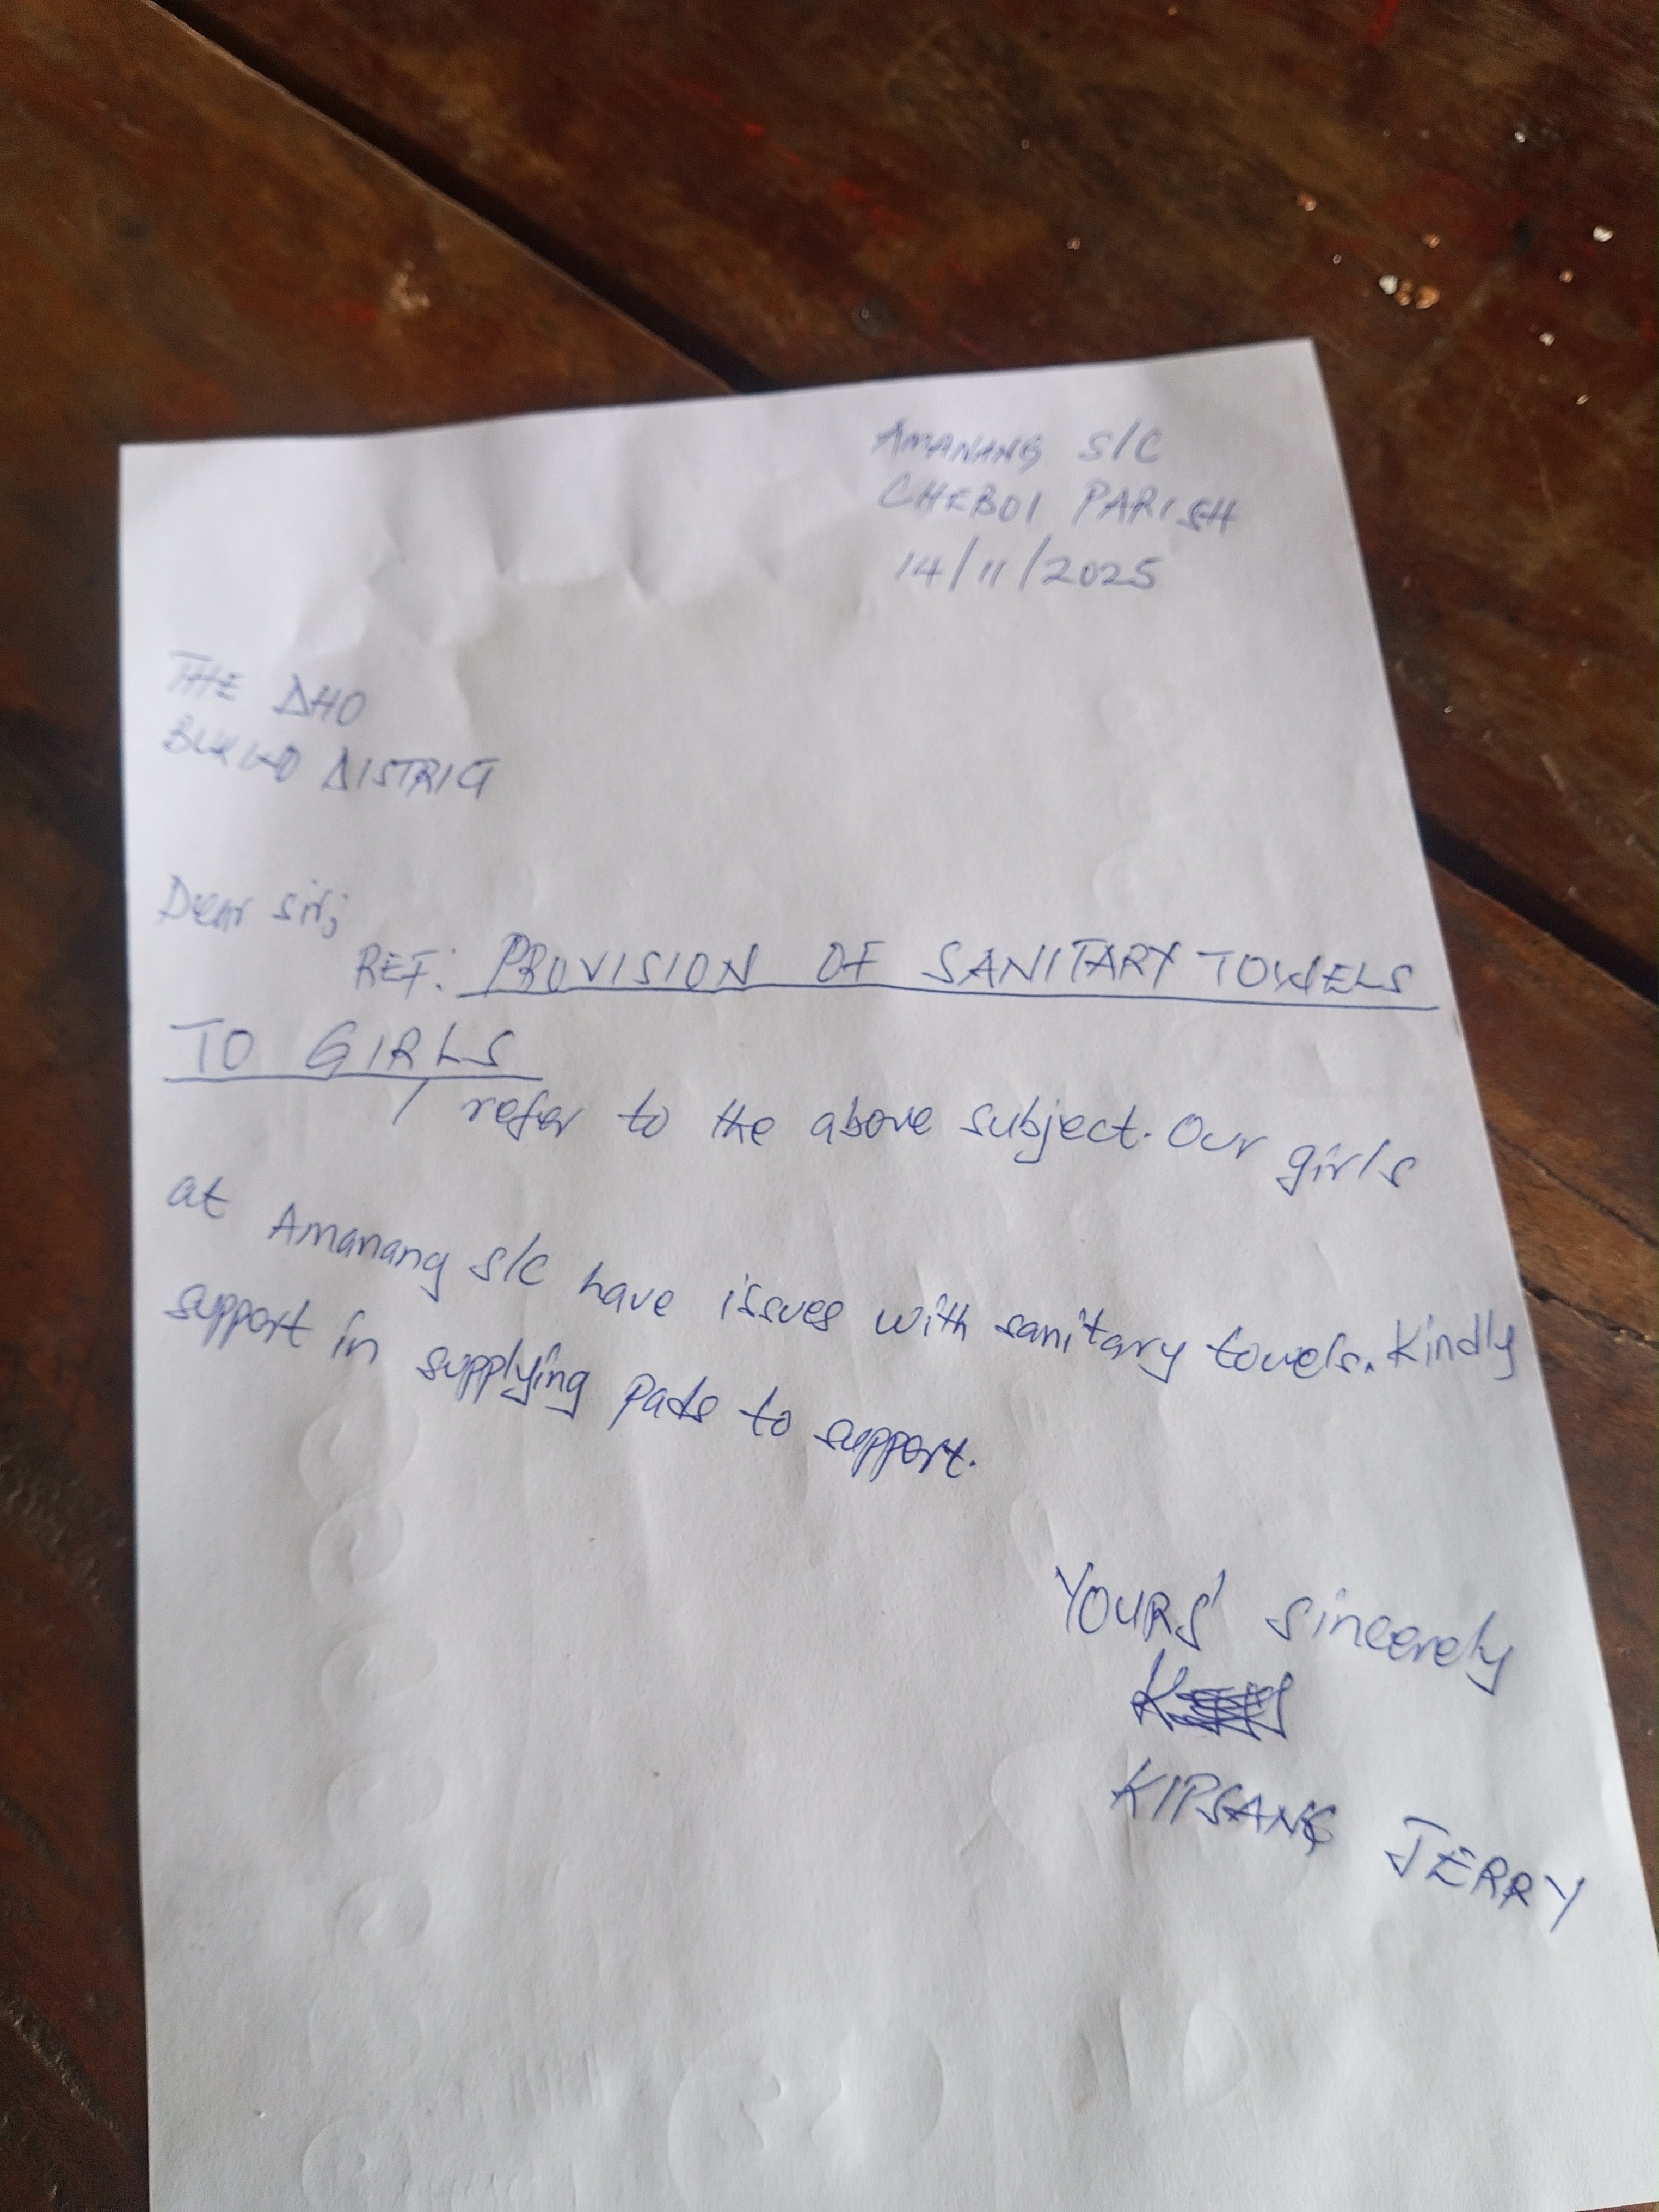 AMANANG S/C
CHEBOI PARISH
14/11/2025
THE DHO
BUKWO DISTRICT
Dear sir;
REF: PROVISION OF SANITARY TOWELS
TO GIRLS
I refer to the above subject. Our girls
at Amanang S/C have issues with sanitary towels. Kindly
support in supplying pads to support.
YOURS' sincerely
KIPSANG JERRY